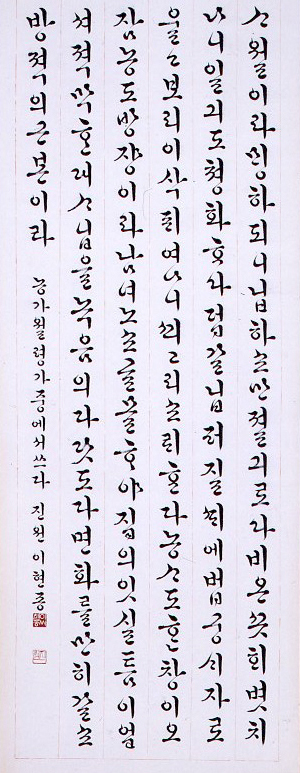 ᄉᆞ월이라ᄆᆡᆼ하되니닙하소만졀긔로라비온ᄭᅳᆺᄒᆡ볏치
나니일긔도쳥화ᄒᆞ사덥갈닙퍼질ᄯᆡ에법궁ᄉᆡ자로
울고보리이삭픠여나니ᄭᅬᄭᅩ리소ᄅᆡᄒᆞᆫ다농ᄉᆞ도ᄒᆞᆫ창이오
잠농도방쟝이라남녀노소골몰ᄒᆞ야집의잇실틈이업
셔젹막ᄒᆞᆫ대ᄉᆞ립을녹음의다닷도다면화를만히갈소
방젹의근본이라
농가월령가중에서쓰다 진원 이현종